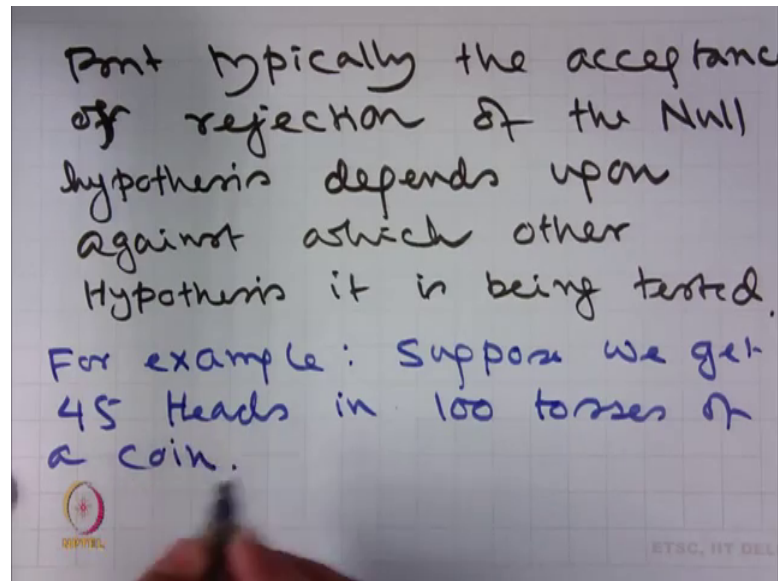 But typically the acceptanc
of rejection of the Null
hypothesis depends upon
against which other
Hypothesis it is being tested.
For example: Suppose we get
45 Heads in 100 tosses of
a coin.
NPTEL
ETSC, IIT DEL